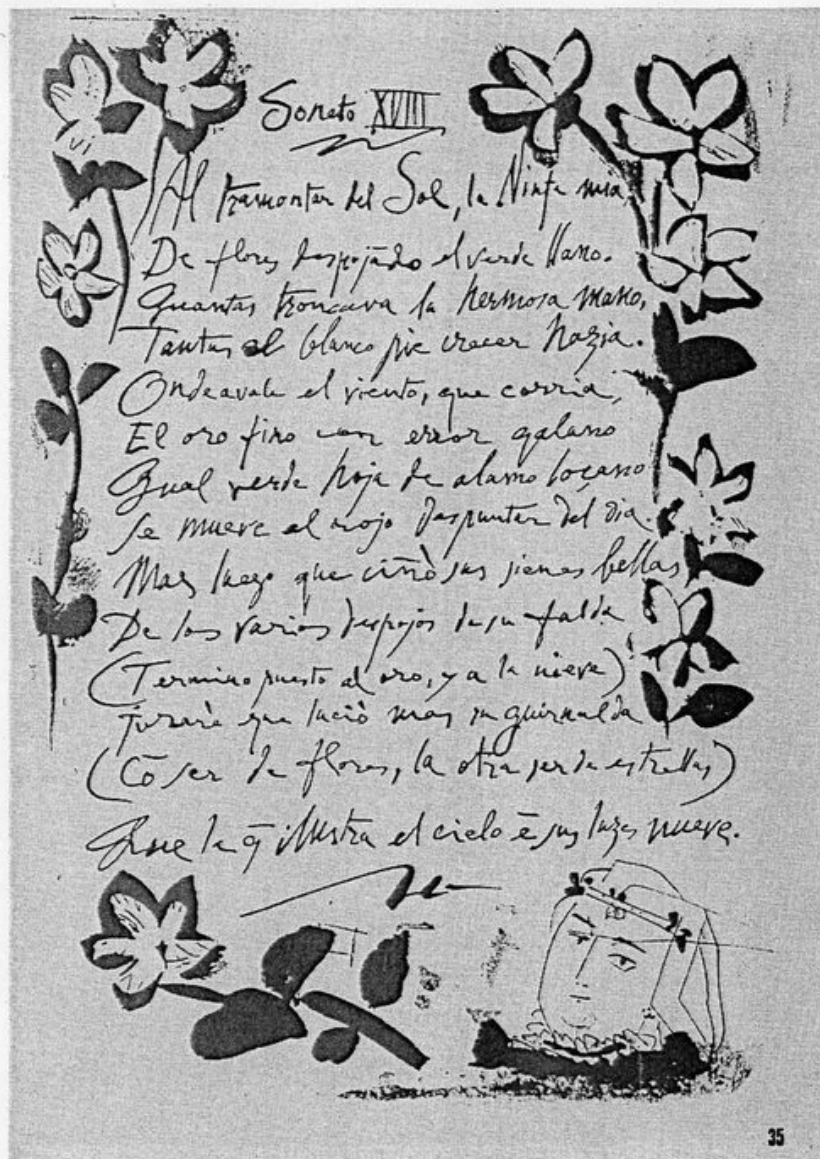 Soneto XVIII
Al tramontar del Sol, la Ninfa mia
De flores despojādo el verde llano.
Quantas troncava la hermosa mano,
Tantas el blanco pie crecer hazia.
Ondeavale el viento, que corria,
El oro fino con error galano
Qual verde hoja de alamo loçano
Se mueve al rojo despuntar del dia.
Mas luego que ciñò sus sienes bellas
De los varios despojos de su falda
(Termino puesto al oro, y a la nieve)
Jurarè que luciò mas su guirnalda
(Cō ser de flores, la otra ser de estrellas)
Que la q̄ illustra el cielo ē sus luzes nueve.
35